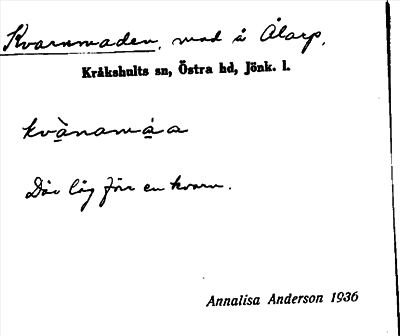 Kvarnmaden, mad å Ålarp.
Kråkshults sn, Östra hd, Jönk. l.
kvànamáa
Där låg förr en kvarn.
Annalisa Anderson 1936